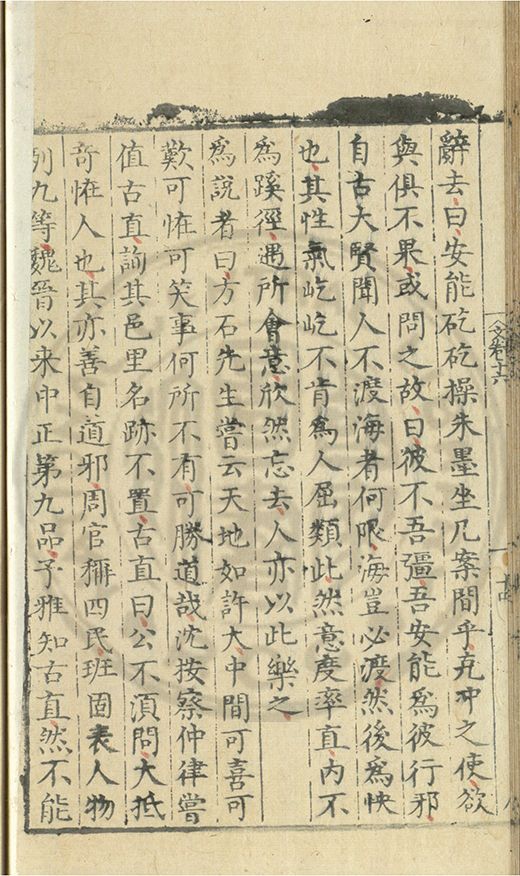 辭去曰安能矻矻操朱墨坐几案間乎克冲之使欲
與俱不果或問之故曰彼不吾彊吾安能爲彼行邪
自古大賢聞人不渡海者何限海豈必渡然後爲快
也其性氣屹屹不肯爲人屈類此然意度率直内不
爲蹊徑遇所會意欣然忘去人亦以此樂之
爲説者曰方石先生嘗云天地如許大中間可喜可
歎可恠可笑事何所不有可勝道哉沈按察仲律嘗
值古直詢其邑里名跡不置古直曰公不湏問大抵
奇恠人也其亦善自道邪周官稱四民班固表人物
列九等魏晉以来中正第九品予雅知古直然不能
卷十六